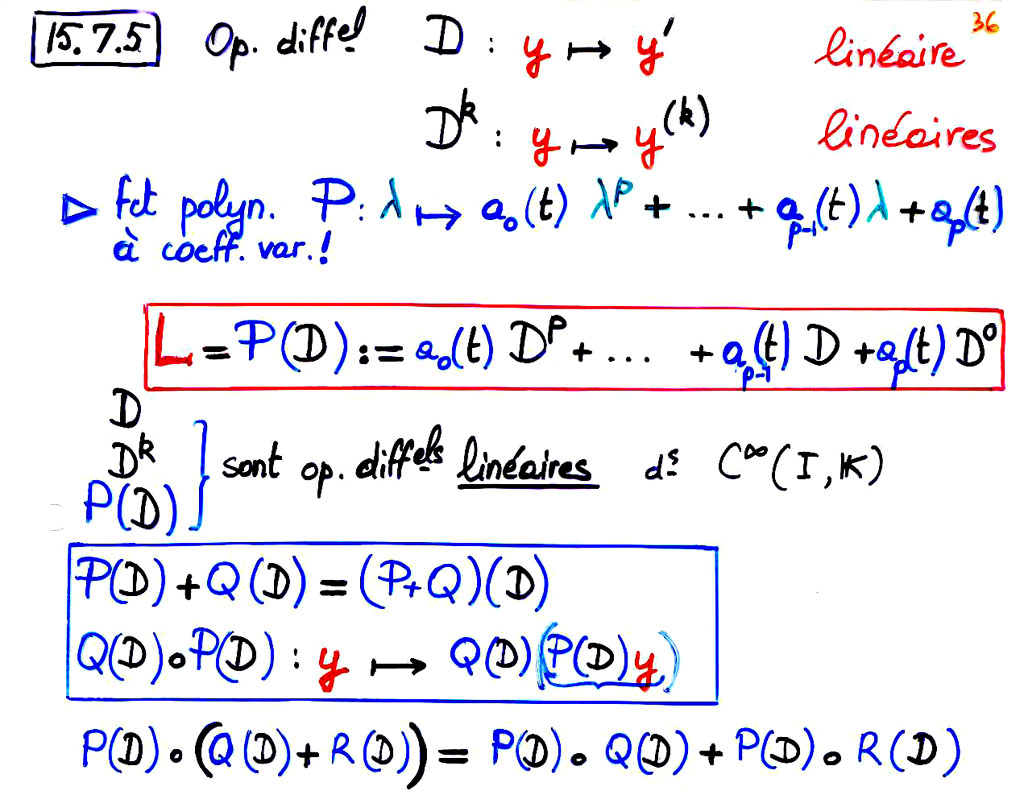 36
15.7.5 Op. diffel D : y ↦ y' linéaire
D^k : y ↦ y^(k) linéaires
▷ fct polyn. P: λ ↦ a₀(t) λ^p + ... + a_{p-1}(t) λ + a_p(t)
à coeff. var.!
L = P(D) := a₀(t) D^p + ... + a_{p-1}(t) D + a_p(t) D⁰
D
D^k } sont op. diffels linéaires ds C^∞(I, K)
P(D)
P(D) + Q(D) = (P+Q)(D)
Q(D)∘P(D) : y ↦ Q(D)(P(D)y)
P(D)∘(Q(D)+R(D)) = P(D)∘Q(D) + P(D)∘R(D)